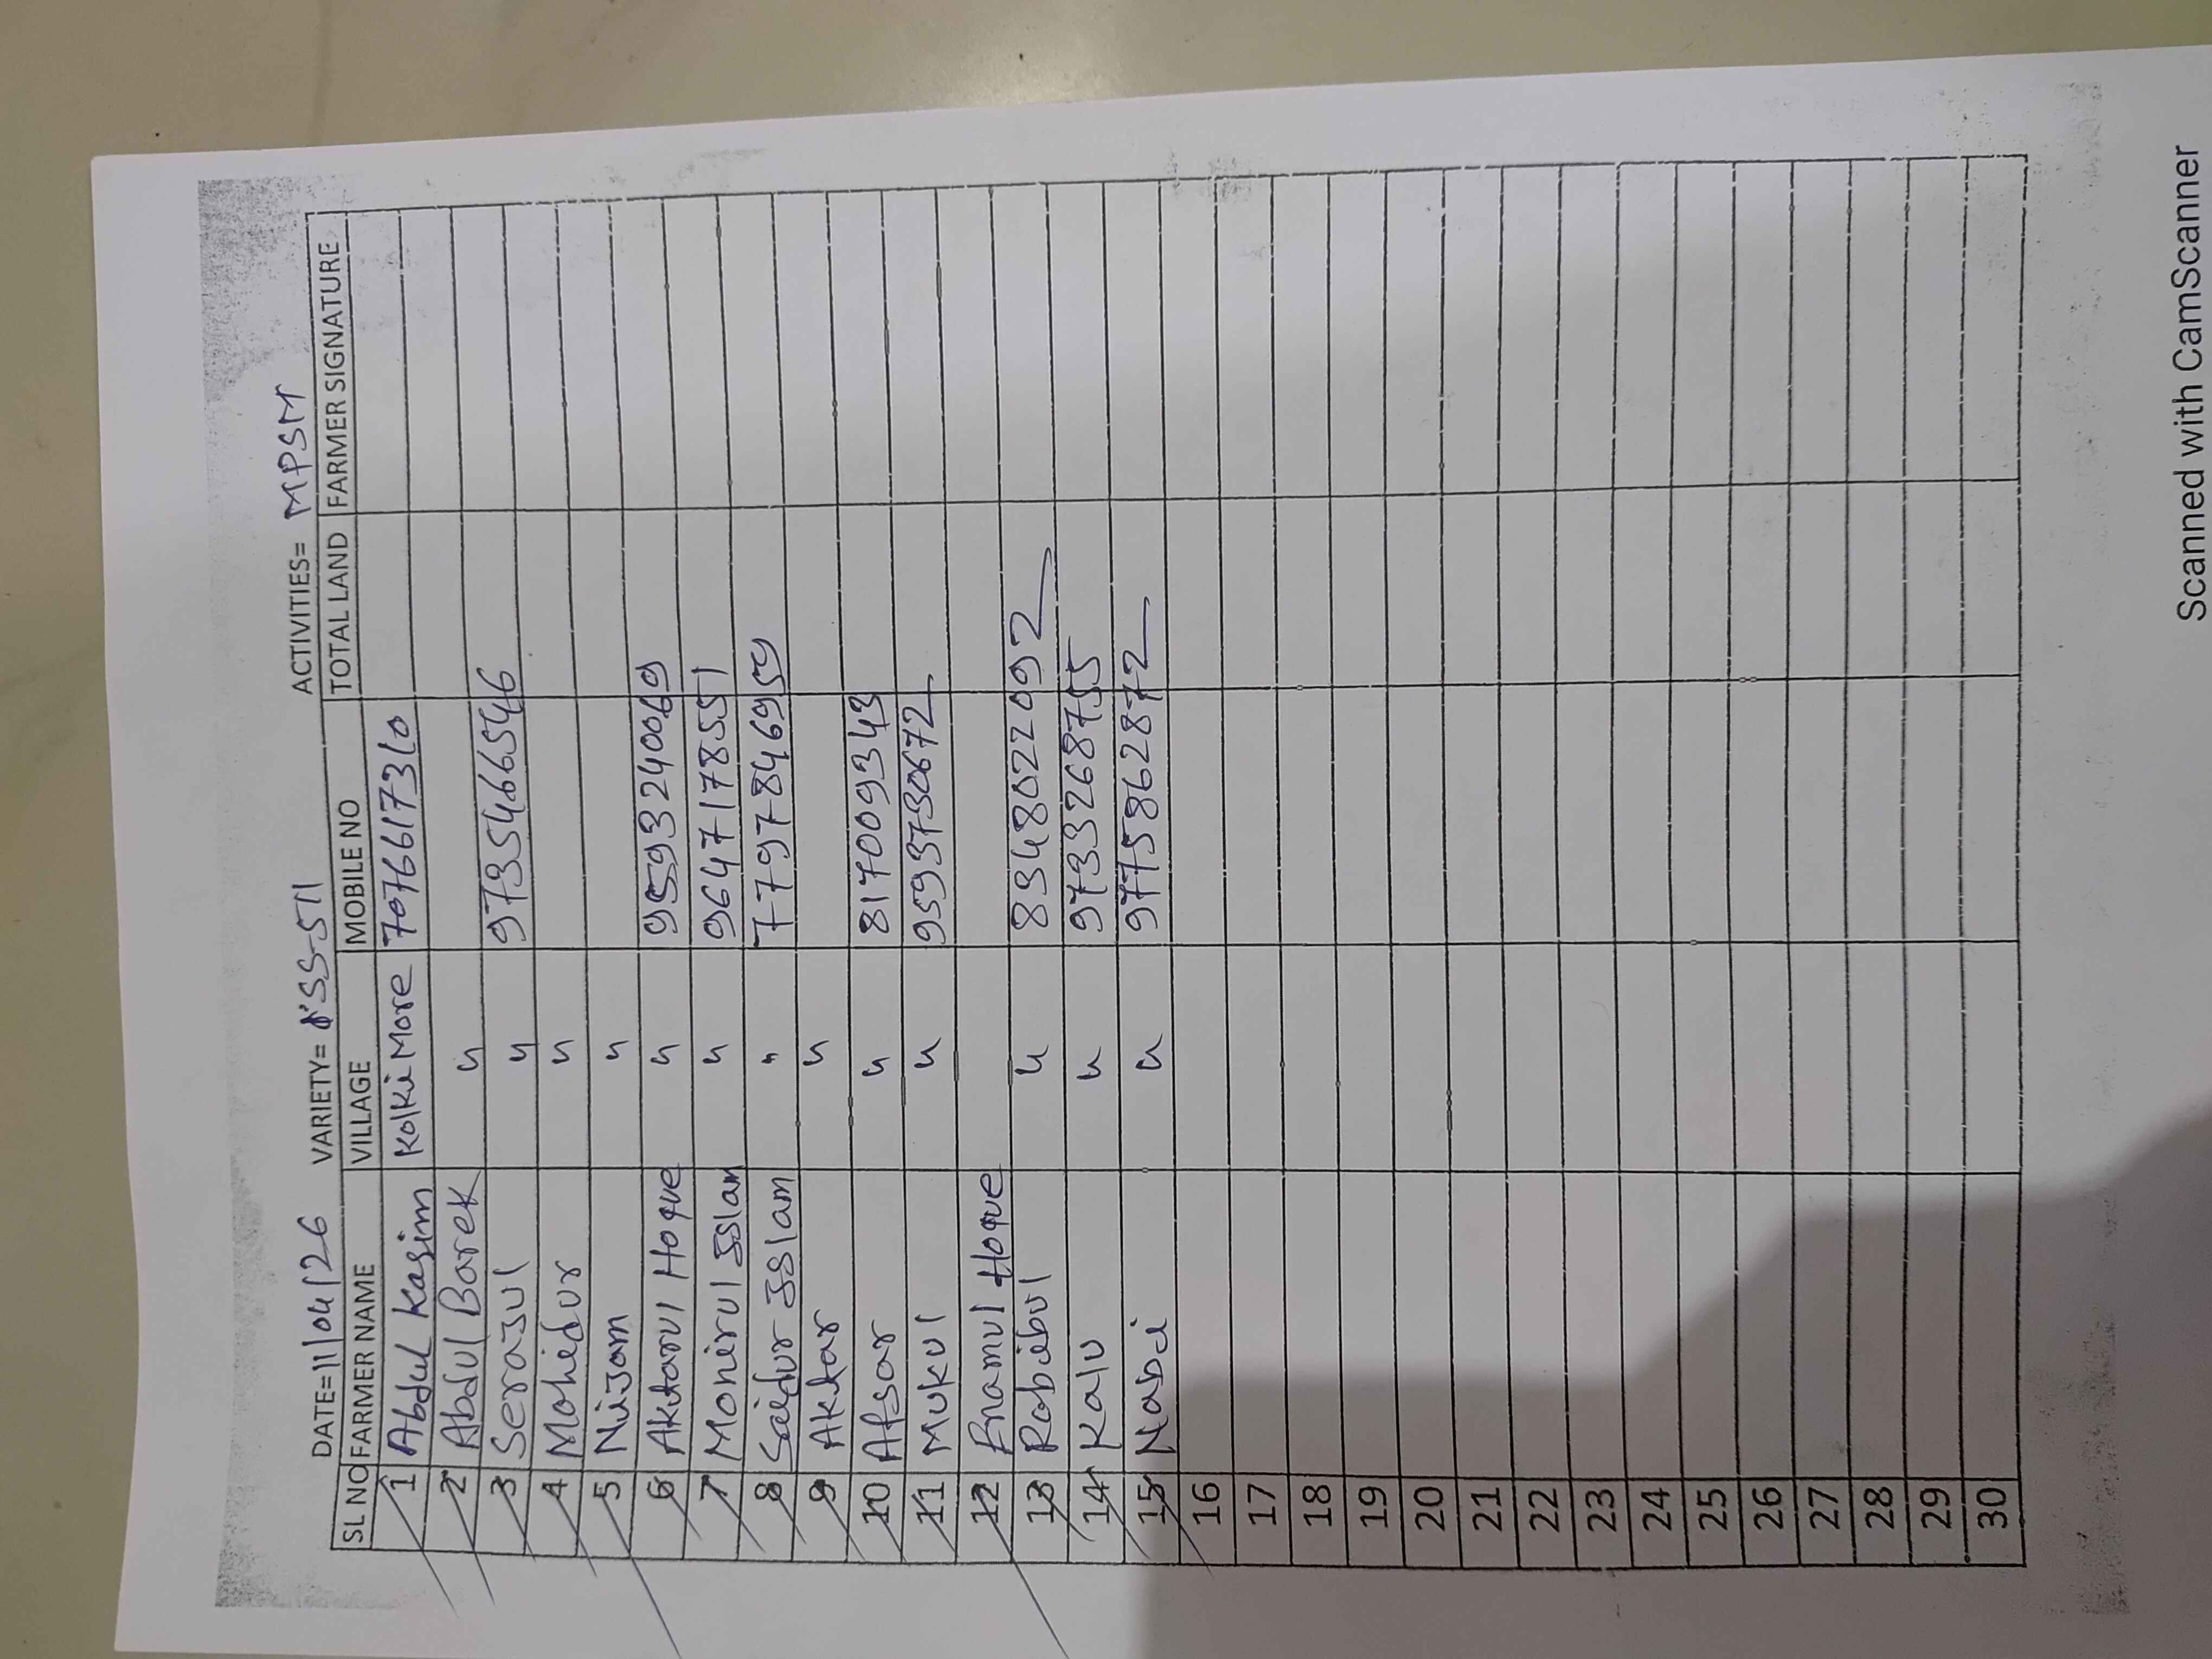 DATE=11/04/26 VARIETY= SS-511 ACTIVITIES= MPSM
SL NO FARMER NAME VILLAGE MOBILE NO TOTAL LAND FARMER SIGNATURE
1 Abdul Kasim Kolki More 7076617310
2 Abdul Barek "
3 Serajul " 9735466546
4 Mohidur "
5 Nijam "
6 Aktarul Hoque " 9593240069
7 Monirul Islam " 9647178551
8 Saidur Islam " 7797846959
9 Aktar "
10 Afsar " 817009343
11 Mukul " 9593730672
12 Enamul Hoque
13 Rabibul " 8348022092
14 Kalu " 9733268755
15 Nabi " 9775862872
16
17
18
19
20
21
22
23
24
25
26
27
28
29
30
Scanned with CamScanner